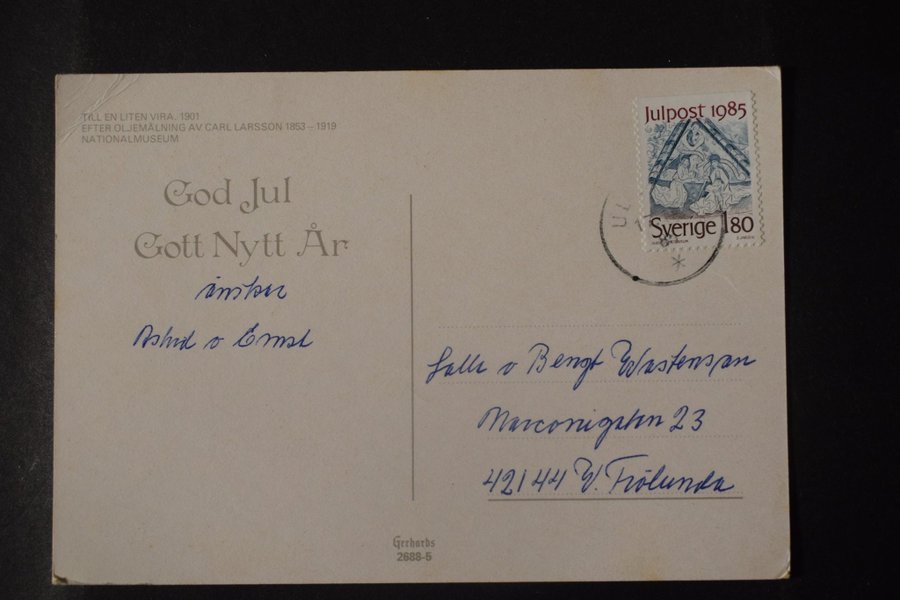 TILL EN LITEN VIRA. 1901
EFTER OLJEMÅLNING AV CARL LARSSON 1853 – 1919
NATIONALMUSEUM
God Jul
Gott Nytt År
önsker
Astrid o Ernst
Julpost 1985
Sverige 180
Salle o Bengt Wastensan
Marconigatan 23
42144 V. Frölunda
Gerhards
2688-5